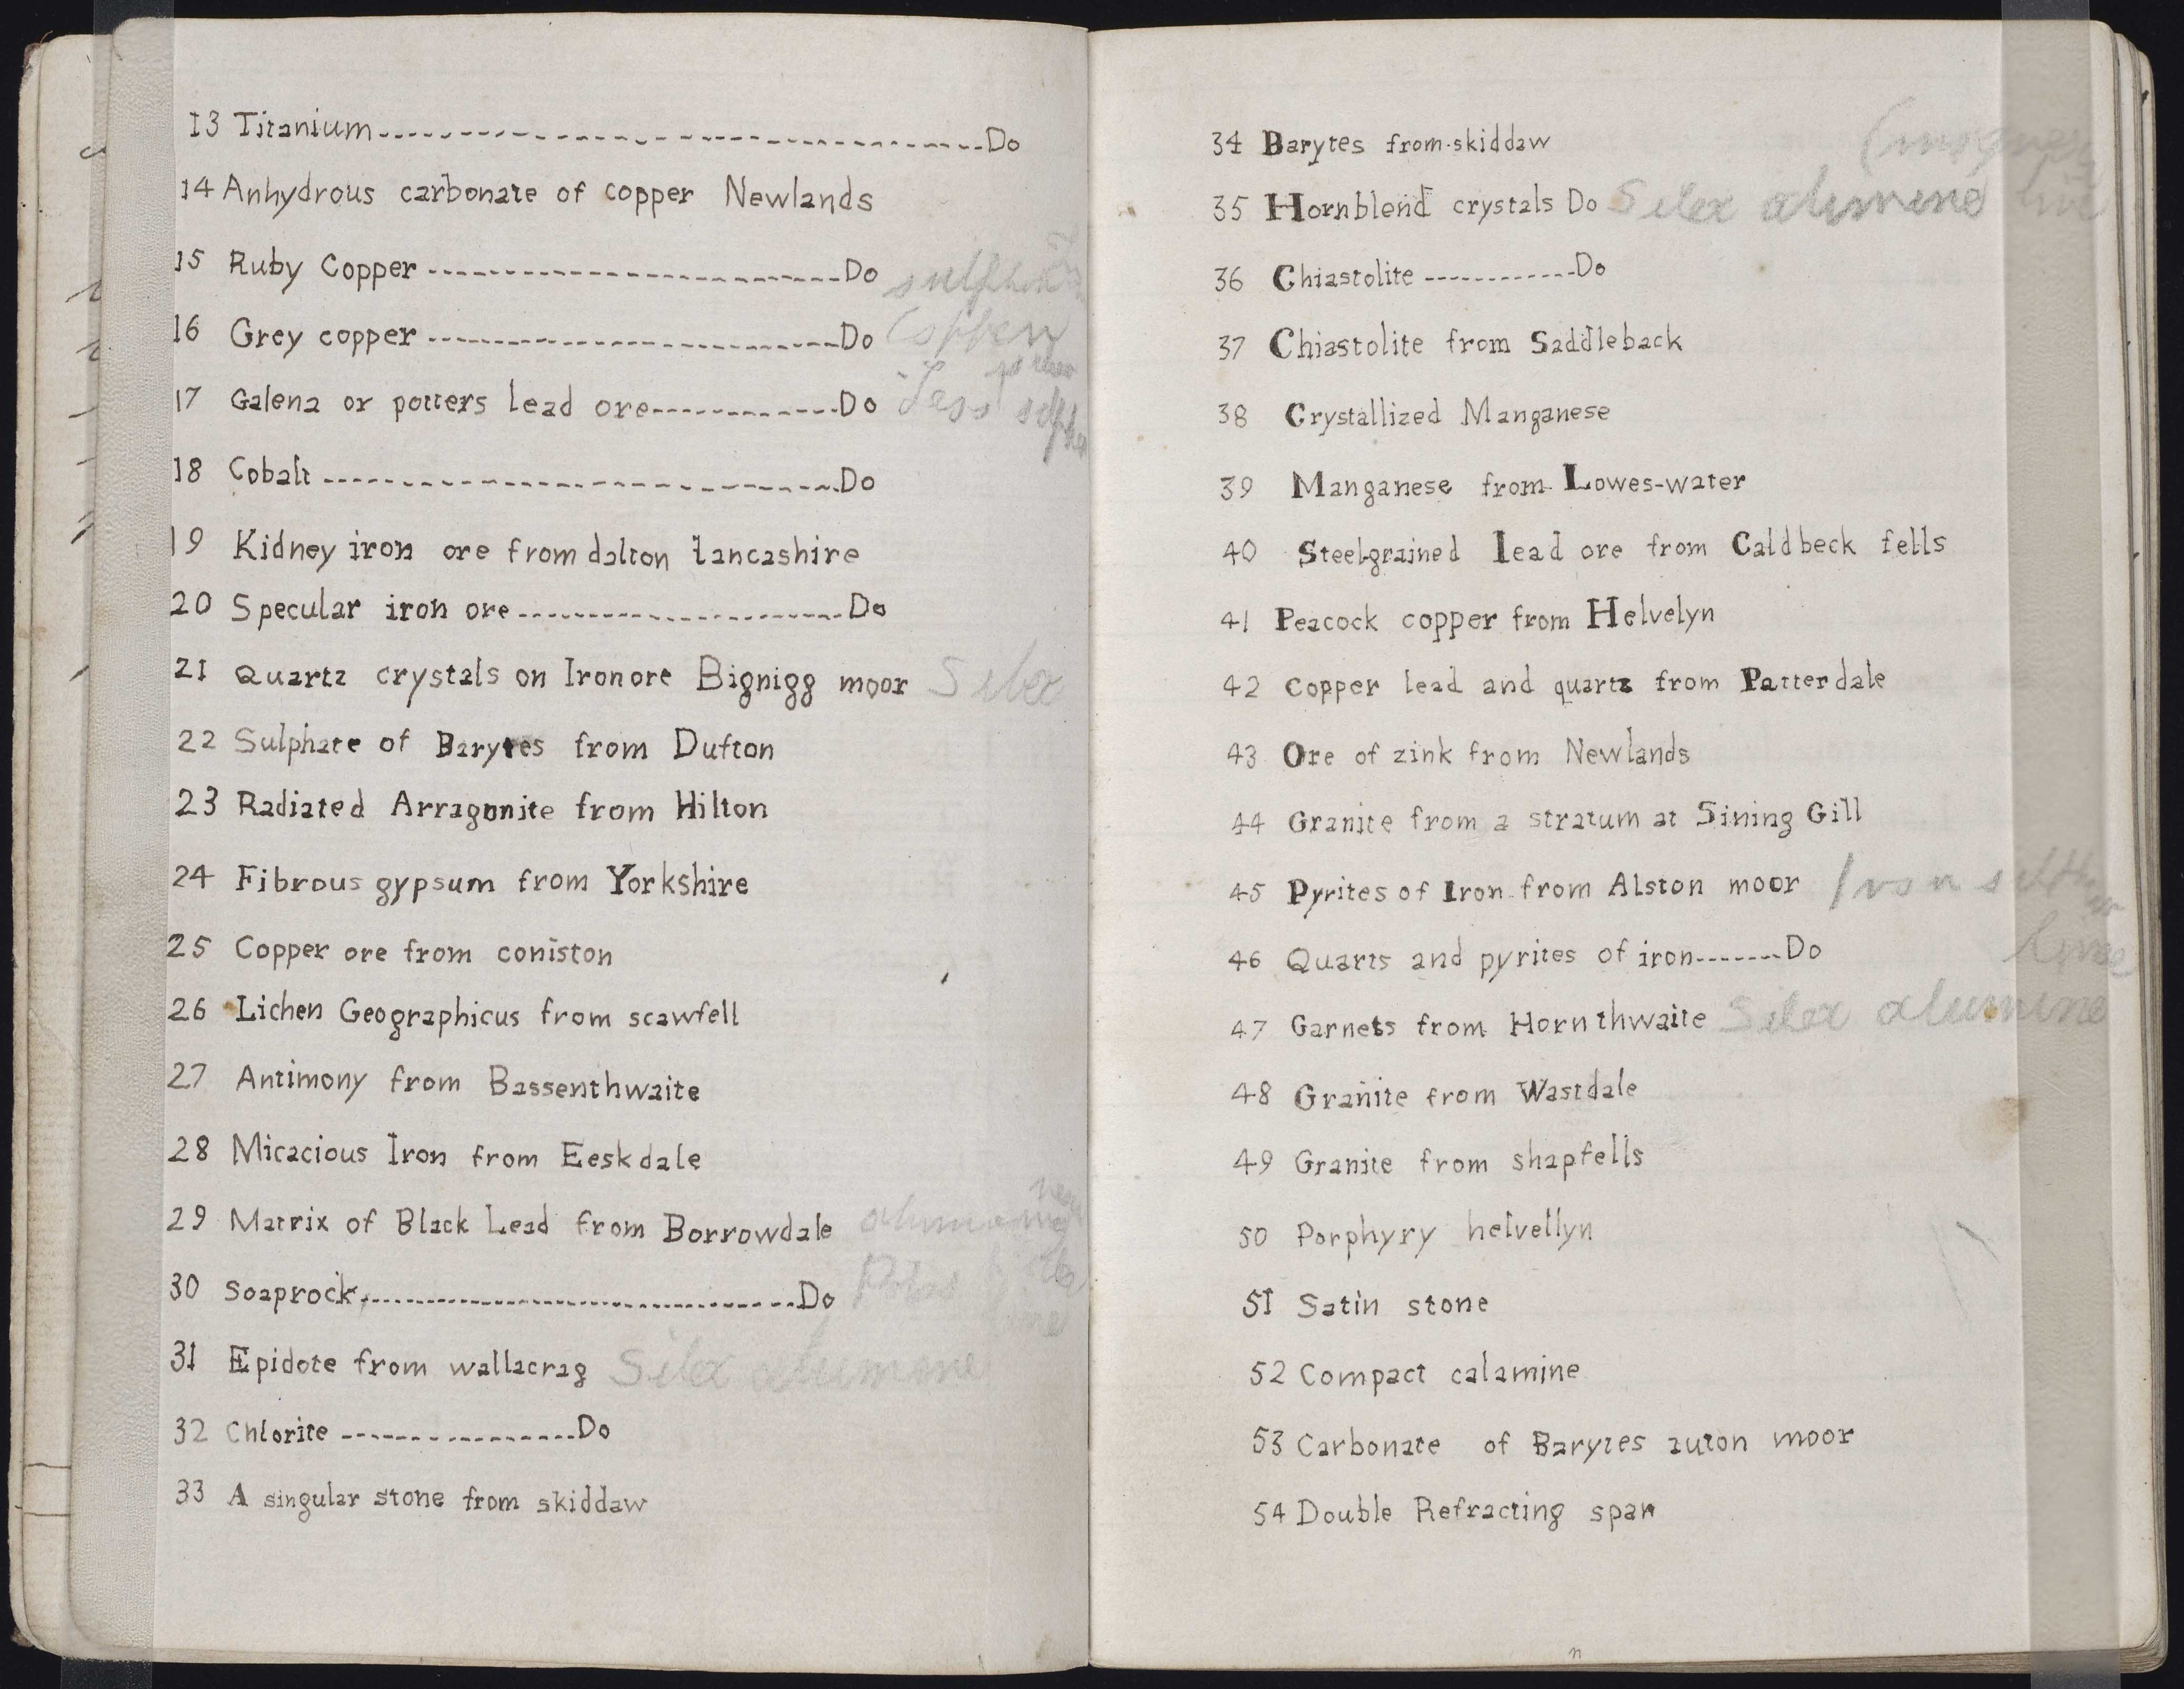 13 Titanium------------------------------------Do
14 Anhydrous carbonate of copper Newlands
15 Ruby Copper------------------------Do
16 Grey copper------------------------Do Copper
17 Galena or potters lead ore------------Do Less
18 Cobalt------------------------------Do
19 Kidney iron ore from dalton lancashire
20 Specular iron ore--------------------Do
21 Quartz crystals on Iron ore Bignigg moor Silex
22 Sulphate of Barytes from Dufton
23 Radiated Arragonite from Hilton
24 Fibrous gypsum from Yorkshire
25 Copper ore from coniston
26 Lichen Geographicus from scawfell
27 Antimony from Bassenthwaite
28 Micacious Iron from Eeskdale
29 Matrix of Black Lead from Borrowdale
30 Soaprock------------------------------Do
31 Epidote from wallacrag Silex alumine
32 Chlorite----------------Do
33 A singular stone from skiddaw
34 Barytes from skiddaw
35 Hornblend crystals Do Silex alumine
36 Chiastolite------------Do
37 Chiastolite from Saddleback
38 Crystallized Manganese
39 Manganese from Lowes-water
40 Steel-grained lead ore from Caldbeck fells
41 Peacock copper from Helvelyn
42 Copper lead and quartz from Patterdale
43 Ore of zink from Newlands
44 Granite from a stratum at Sining Gill
45 Pyrites of Iron from Alston moor Iron
46 Quarts and pyrites of iron-------Do
lime
47 Garnets from Hornthwaite Silex alumine
48 Granite from Wastdale
49 Granite from shapfells
50 Porphyry helvellyn
51 Satin stone
52 Compact calamine
53 Carbonate of Barytes auton moor
54 Double Refracting spar